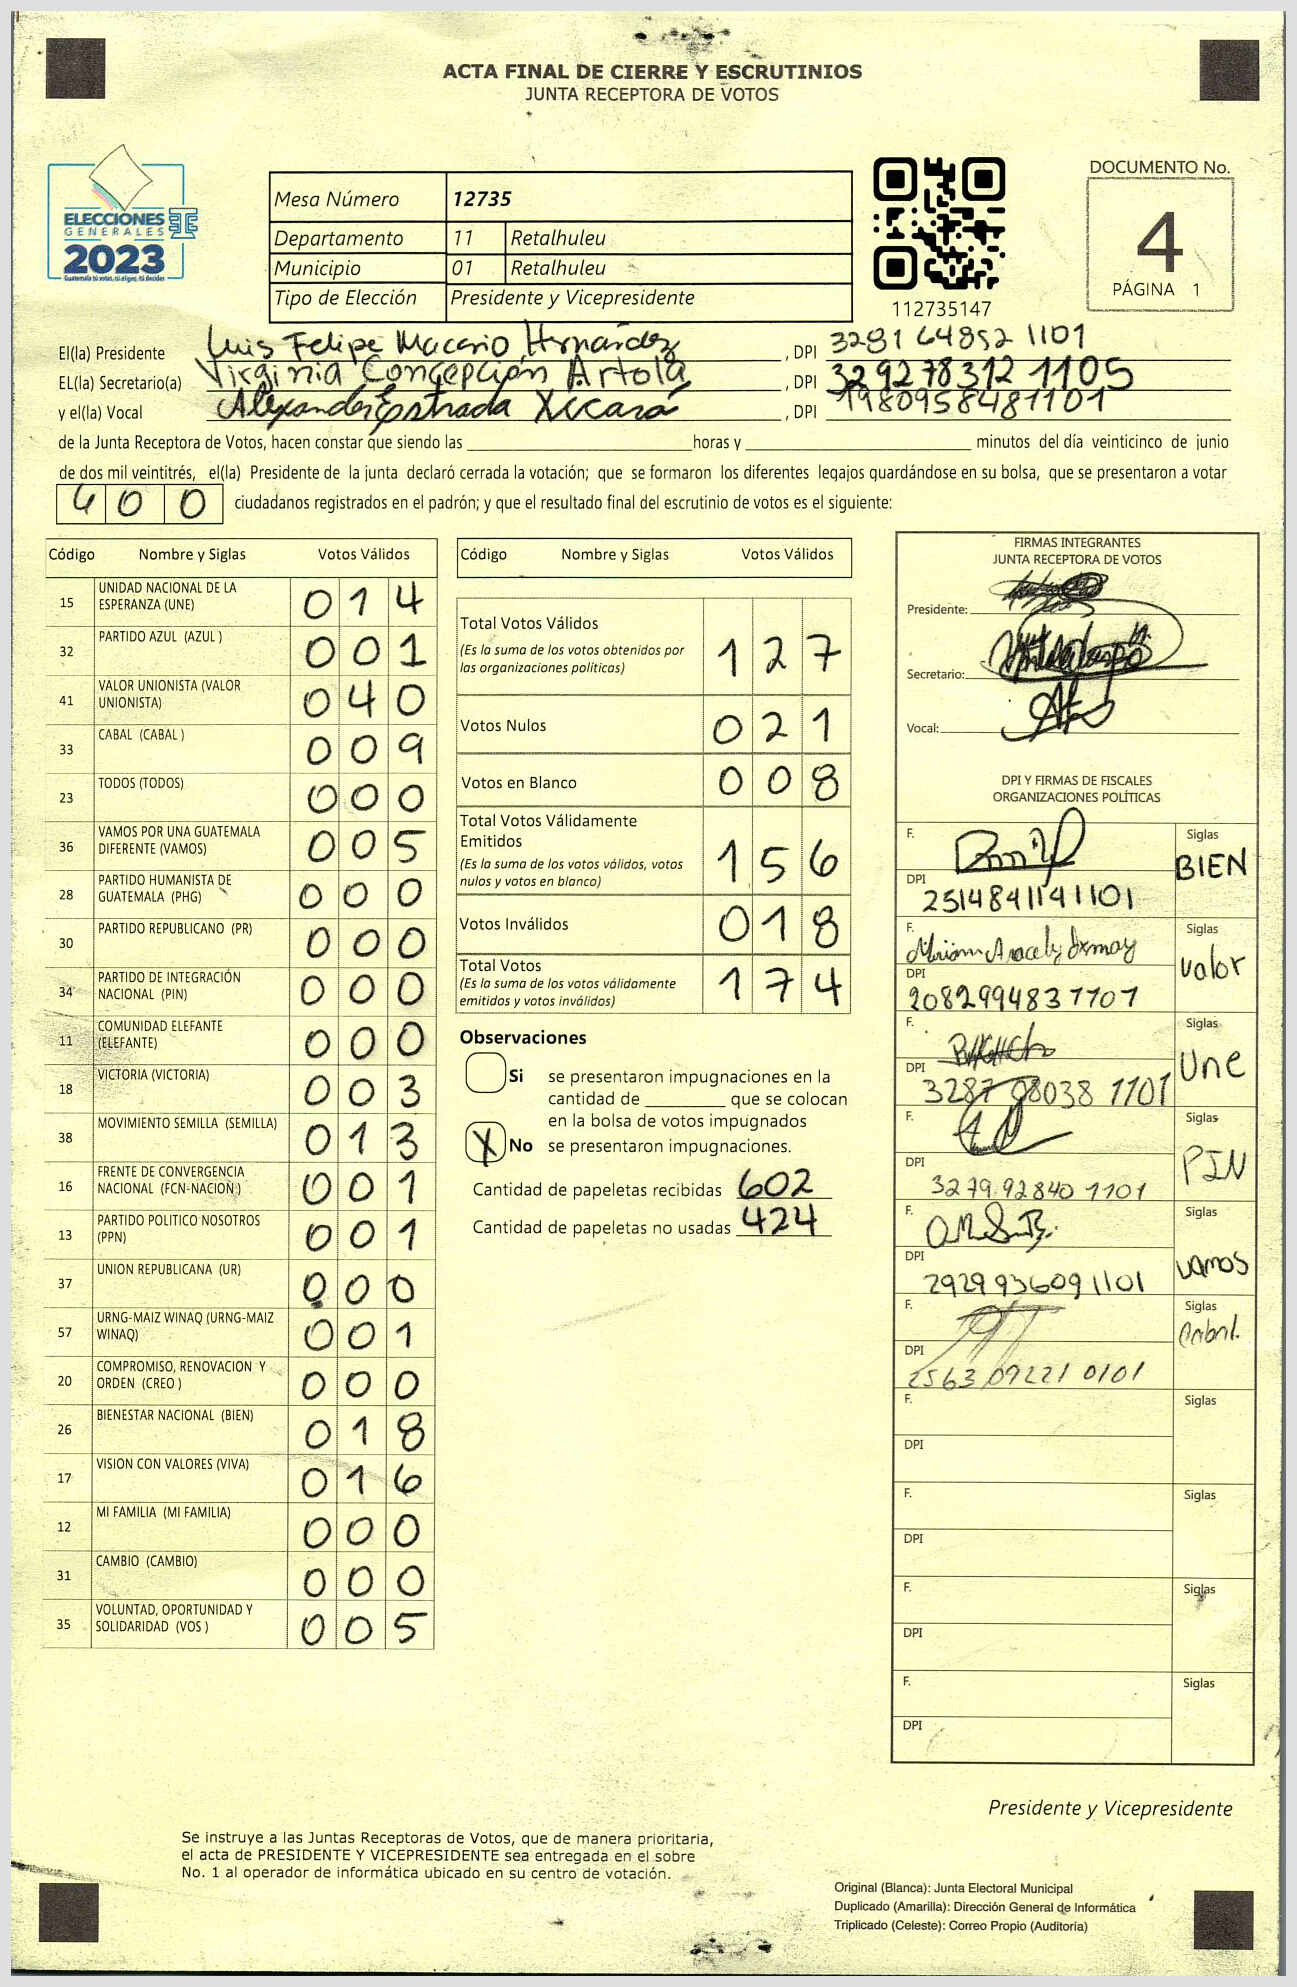 ACTA FINAL DE CIERRE Y ESCRUTINIOS
JUNTA RECEPTORA DE VOTOS
ELECCIONES
GENERALES
2023
Mesa Número 12735
Departamento 11 Retalhuleu
Municipio 01 Retalhuleu
Tipo de Elección Presidente y Vicepresidente
112735147
DOCUMENTO No.
4
PÁGINA 1
El(la) Presidente Luis Felipe Macario Hernández, DPI 3281 64852 1101
EL(la) Secretario(a) Virginia Concepción Artola, DPI 329278312 1105
y el(la) Vocal Alexander Estrada Xicará, DPI 1980958481101
de la Junta Receptora de Votos, hacen constar que siendo las horas y minutos del día veinticinco de junio
de dos mil veintitrés, el(la) Presidente de la junta declaró cerrada la votación; que se formaron los diferentes legajos guardándose en su bolsa, que se presentaron a votar
400 ciudadanos registrados en el padrón; y que el resultado final del escrutinio de votos es el siguiente:
Código Nombre y Siglas Votos Válidos
15 UNIDAD NACIONAL DE LA ESPERANZA (UNE) 014
32 PARTIDO AZUL (AZUL ) 001
41 VALOR UNIONISTA (VALOR UNIONISTA) 040
33 CABAL (CABAL ) 009
23 TODOS (TODOS) 000
36 VAMOS POR UNA GUATEMALA DIFERENTE (VAMOS) 005
28 PARTIDO HUMANISTA DE GUATEMALA (PHG) 000
30 PARTIDO REPUBLICANO (PR) 000
34 PARTIDO DE INTEGRACIÓN NACIONAL (PIN) 000
11 COMUNIDAD ELEFANTE (ELEFANTE) 000
18 VICTORIA (VICTORIA) 003
38 MOVIMIENTO SEMILLA (SEMILLA) 013
16 FRENTE DE CONVERGENCIA NACIONAL (FCN-NACION ) 001
13 PARTIDO POLITICO NOSOTROS (PPN) 001
37 UNION REPUBLICANA (UR) 000
57 URNG-MAIZ WINAQ (URNG-MAIZ WINAQ) 001
20 COMPROMISO, RENOVACION Y ORDEN (CREO ) 000
26 BIENESTAR NACIONAL (BIEN) 018
17 VISION CON VALORES (VIVA) 016
12 MI FAMILIA (MI FAMILIA) 000
31 CAMBIO (CAMBIO) 000
35 VOLUNTAD, OPORTUNIDAD Y SOLIDARIDAD (VOS ) 005
Código Nombre y Siglas Votos Válidos
Total Votos Válidos 127
(Es la suma de los votos obtenidos por
las organizaciones políticas)
Votos Nulos 021
Votos en Blanco 008
Total Votos Válidamente
Emitidos 156
(Es la suma de los votos válidos, votos
nulos y votos en blanco)
Votos Inválidos 018
Total Votos 174
(Es la suma de los votos válidamente
emitidos y votos inválidos)
Observaciones
Si se presentaron impugnaciones en la
cantidad de que se colocan
en la bolsa de votos impugnados
X No se presentaron impugnaciones.
Cantidad de papeletas recibidas 602
Cantidad de papeletas no usadas 424
FIRMAS INTEGRANTES
JUNTA RECEPTORA DE VOTOS
Presidente:
Secretario:
Vocal:
DPI Y FIRMAS DE FISCALES
ORGANIZACIONES POLÍTICAS
F. Siglas BIEN
DPI 2514841141101
F. Miriam Aracely Ixmay Siglas Valor
DPI 2082994831101
F. Siglas Une
DPI 3287 08038 1101
F. Siglas PIN
DPI 3279 92840 1101
F. Siglas vamos
DPI 2929936091101
F. Siglas
DPI 2563 09221 0101
F. Siglas
DPI
F. Siglas
DPI
F. Siglas
DPI
F. Siglas
DPI
Presidente y Vicepresidente
Se instruye a las Juntas Receptoras de Votos, que de manera prioritaria,
el acta de PRESIDENTE Y VICEPRESIDENTE sea entregada en el sobre
No. 1 al operador de informática ubicado en su centro de votación.
Original (Blanca): Junta Electoral Municipal
Duplicado (Amarilla): Dirección General de Informática
Triplicado (Celeste): Correo Propio (Auditoría)